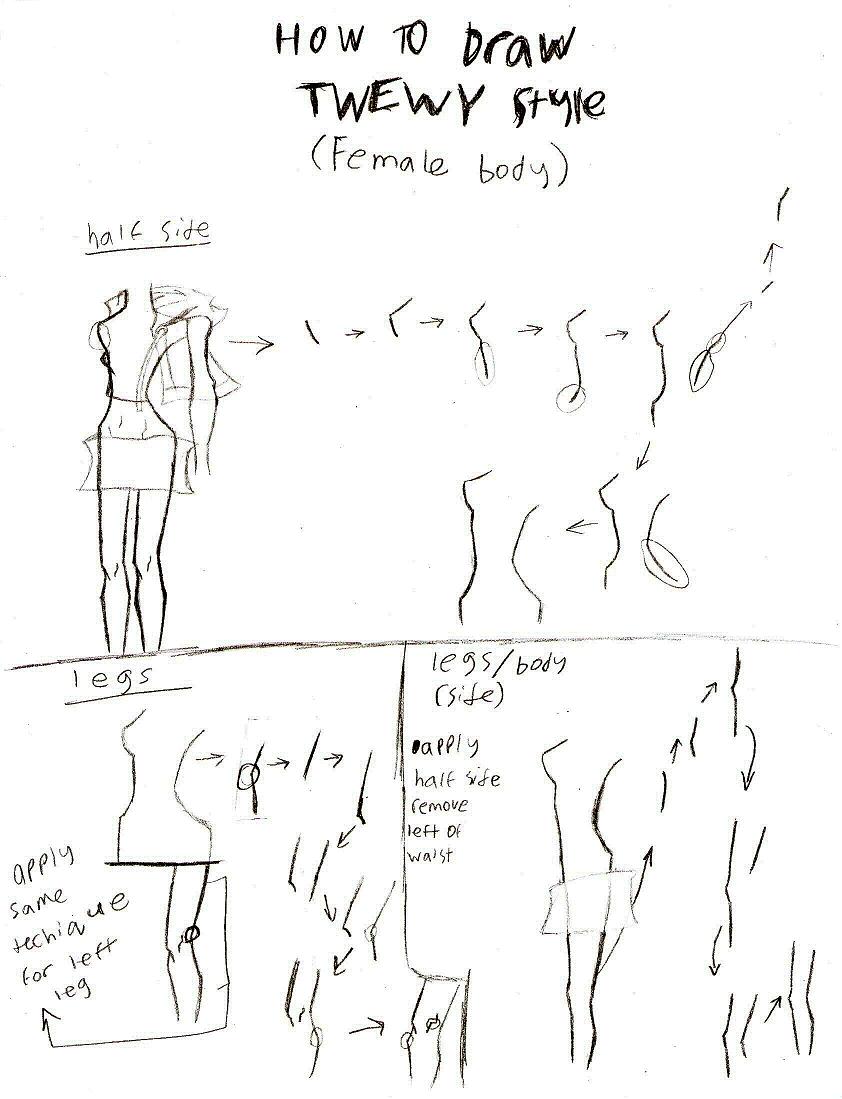 HOW TO Draw
TWEWY Style
(Female body)
half side
legs
apply
same
techique
for left
leg
legs/body
(side)
apply
half side
remove
left of
waist